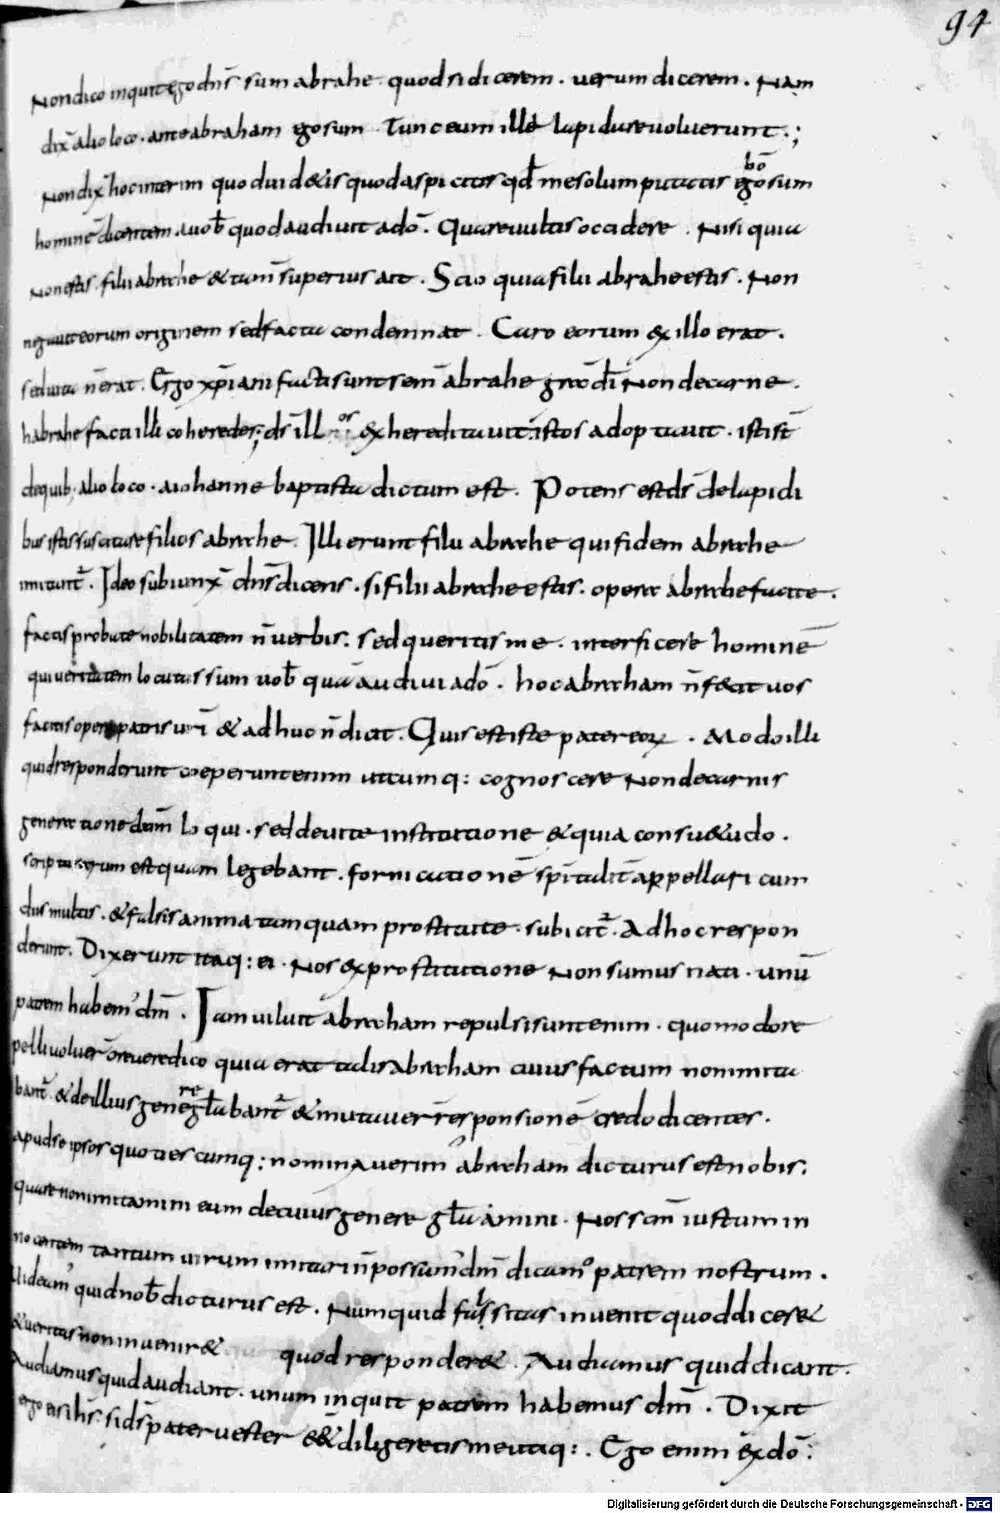 94
Non dico inquit ego dn̄s sum abrahe. quod si dicerem. uerum dicerem. Nam
dix̄ alio loco. ante abraham ego sum. Tunc eum ille lapidare uoluerunt.;
Non dix̄ hoc interim quod uidetis quod aspicitis qd̄ me solum putatis ego sum
bō
hominē dicentem. uob̄ quod audiuit a dō. Quare uultis occidere. Nisi quia
non estis filii abrahe & tam̄ superius ait. Scio quia filii abrahe estis. Non
negauit eorum originem sed facta condemnat. Caro eorum ex illo erat.
sed uita n̄ erat. Ergo xp̄iani facti sunt sem̄ abrahe grā dī Non de carne.
habrahe facti illi coheredes; ds̄ ill os exhereditauit. istos adoptauit. isti st̄
de quib; alio loco. a iohanne baptista dictum est. Potens est ds̄ de lapidi
bus istis suscitare filios abrahe. Illi erunt filii abrahe qui fidem abrahe
imitant̄. Ideo subiunx̄ dn̄s dicens. si filii abrahe estis. opera abrahe facite.
factis probate nobilitatem n̄ uerbis. sed queritis me. interficere hominē
qui ueritatem locutus sum uob̄ quā audiui a dō. hoc abraham n̄ fecit uos
facitis opera patris urī & adhuc n̄ dicit. Quis est iste pater eorꝝ. Modo illi
quid responderunt coeperunt enim utcumq: cognoscere Non de carnis
generatione dnm̄ loqui. sed de uite institutione & quia consuetudo.
scripturarum est quam legebant. fornicationē spiritalit̄ appellari cum
diis multis. & falsis anima tamquam prostituta. subicit̄. Ad hoc respon
derunt. Dixerunt itaq: ei. Nos ex prostitutione Non sumus nati. unū
patrem habem' dm̄. Iam uiluit abraham repulsi sunt enim. quomodo re
pelli uoluer̄ ore ueredico quia erat talis abraham cuius factum non imita
bant̄. & de illius genere gl̄abant̄ & mutauer̄ responsionē credo dicentes.
apud se ipsos quotiescumq: nominauerim' abraham dicturus est nobis:
quare non imitamini eum de cuius genere gl̄amini. Nos sc̄m iustum in
nocentem tantum uirum imitari n̄ possum' dm̄ dicam' patrem nostrum.
Uideam' quid nob̄ dicturus est. Numquid falsitas inuenit quod diceret
& ueritas non inueniret quod responderet. Audiamus quid dicant.
Audiamus quid audiant. unum inquit patrem habemus dm̄. Dixit
ergo eis ihs̄. si ds̄ pater uester eēt diligeretis me utiq:. Ego enim ex dō:
Digitalisierung gefördert durch die Deutsche Forschungsgemeinschaft - DFG